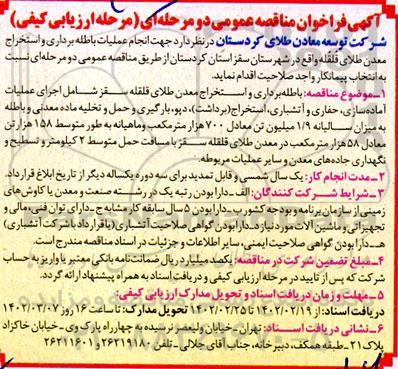 آگهی فراخوان مناقصه عمومی دو مرحله‌ای (مرحله ارزیابی کیفی)
شرکت توسعه معادن طلای کردستان در نظر دارد جهت انجام عملیات باطله برداری و استخراج
معدن طلای قلقله واقع در شهرستان سقز استان کردستان از طریق مناقصه عمومی دو مرحله‌ای نسبت
به انتخاب پیمانکار واجد صلاحیت اقدام نماید.
۱-موضوع مناقصه: باطله‌برداری و استخراج معدن طلای قلقله سقز شامل اجرای عملیات
آماده‌سازی، حفاری و آتشباری، استخراج (برداشت)، دپو، بارگیری و حمل و تخلیه ماده معدنی و باطله
به میزان سالیانه ۱/۹ میلیون تن معادل ۷۰۰ هزار مترمکعب و ماهیانه به طور متوسط ۱۵۸ هزار تن
معادل ۵۸ هزار مترمکعب در معدن طلای قلقله سقز با مسافت حمل متوسط ۲ کیلومتر و تسطیح و
نگهداری جاده‌های معدن و سایر عملیات مربوطه.
۲-مدت انجام کار: یک سال شمسی و قابل تمدید برای سه دوره یکساله دیگر از تاریخ ابلاغ قرارداد.
۳-شرایط شرکت کنندگان: الف-دارا بودن رتبه یک در رشته صنعت و معدن یا کاوش‌های
زمینی از سازمان برنامه و بودجه کشور ب-دارا بودن ۵ سال سابقه کار مشابه ج-دارای توان فنی، مالی و
تجهیزاتی و ماشین آلات مورد نیاز د-دارا بودن گواهی صلاحیت آتشباری (یا قرارداد با شرکت آتشباری)
هـ-دارا بودن گواهی صلاحیت ایمنی، سایر اطلاعات و جزئیات در اسناد مناقصه مندرج است.
۴-مبلغ تضمین شرکت در مناقصه: یکصد میلیارد ریال ضمانت‌نامه بانکی معتبر یا واریز به حساب
شرکت که پس از تایید در مرحله ارزیابی کیفی و دریافت اسناد به همراه پیشنهاد ارائه گردد.
۵-مهلت و زمان دریافت اسناد و تحویل مدارک ارزیابی کیفی:
دریافت اسناد: از ۱۴۰۲/۰۲/۱۹ تا ۱۴۰۲/۰۲/۲۵ تحویل مدارک: تا ساعت ۱۶ روز ۱۴۰۲/۰۳/۰۷
۶-نشانی دریافت اسناد: تهران-خیابان ولیعصر نرسیده به چهارراه پارک وی-خیابان خاکزاد
پلاک ۲۱-طبقه همکف، دبیرخانه، جناب آقای جلالی-تلفن ۲۶۲۱۹۱۸۰ و ۲۶۲۱۱۶۰۱